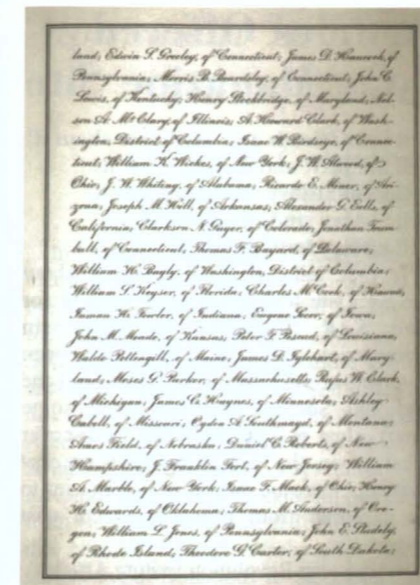 land; Edwin S. Greeley, of Connecticut; James D. Hancock, of
Pennsylvania; Morris B. Beardsley, of Connecticut; John C.
Lewis, of Kentucky; Henry Stockbridge, of Maryland; Nel-
son A. McClary, of Illinois; A. Howard Clark, of Wash-
ington, District of Columbia; Isaac W. Birdseye, of Connec-
ticut; William K. Wickes, of New York; J. W. Atwood, of
Ohio; J. W. Whiting, of Alabama; Ricardo E. Miner, of Ari-
zona; Joseph M. Hill, of Arkansas; Alexander G. Eells, of
California; Clarkson N. Guyer, of Colorado; Jonathan Trum-
bull, of Connecticut; Thomas F. Bayard, of Delaware;
William H. Bayly, of Washington, District of Columbia;
William S. Keyser, of Florida; Charles M. Cooke, of Hawaii;
Inman H. Fowler, of Indiana; Eugene Secor, of Iowa;
John M. Meade, of Kansas; Peter F. Pescud, of Louisiana;
Waldo Pettengill, of Maine; James D. Iglehart, of Mary-
land; Moses G. Parker, of Massachusetts; Rufus W. Clark,
of Michigan; James C. Haynes, of Minnesota; Ashley
Cabell, of Missouri; Ogden A. Southmayd, of Montana;
Amos Field, of Nebraska; Daniel C. Roberts, of New
Hampshire; J. Franklin Fort, of New Jersey; William
A. Marble, of New York; Isaac F. Mack, of Ohio; Henry
H. Edwards, of Oklahoma; Thomas M. Anderson, of Ore-
gon; William L. Jones, of Pennsylvania; John E. Studley,
of Rhode Island; Theodore G. Carter, of South Dakota;